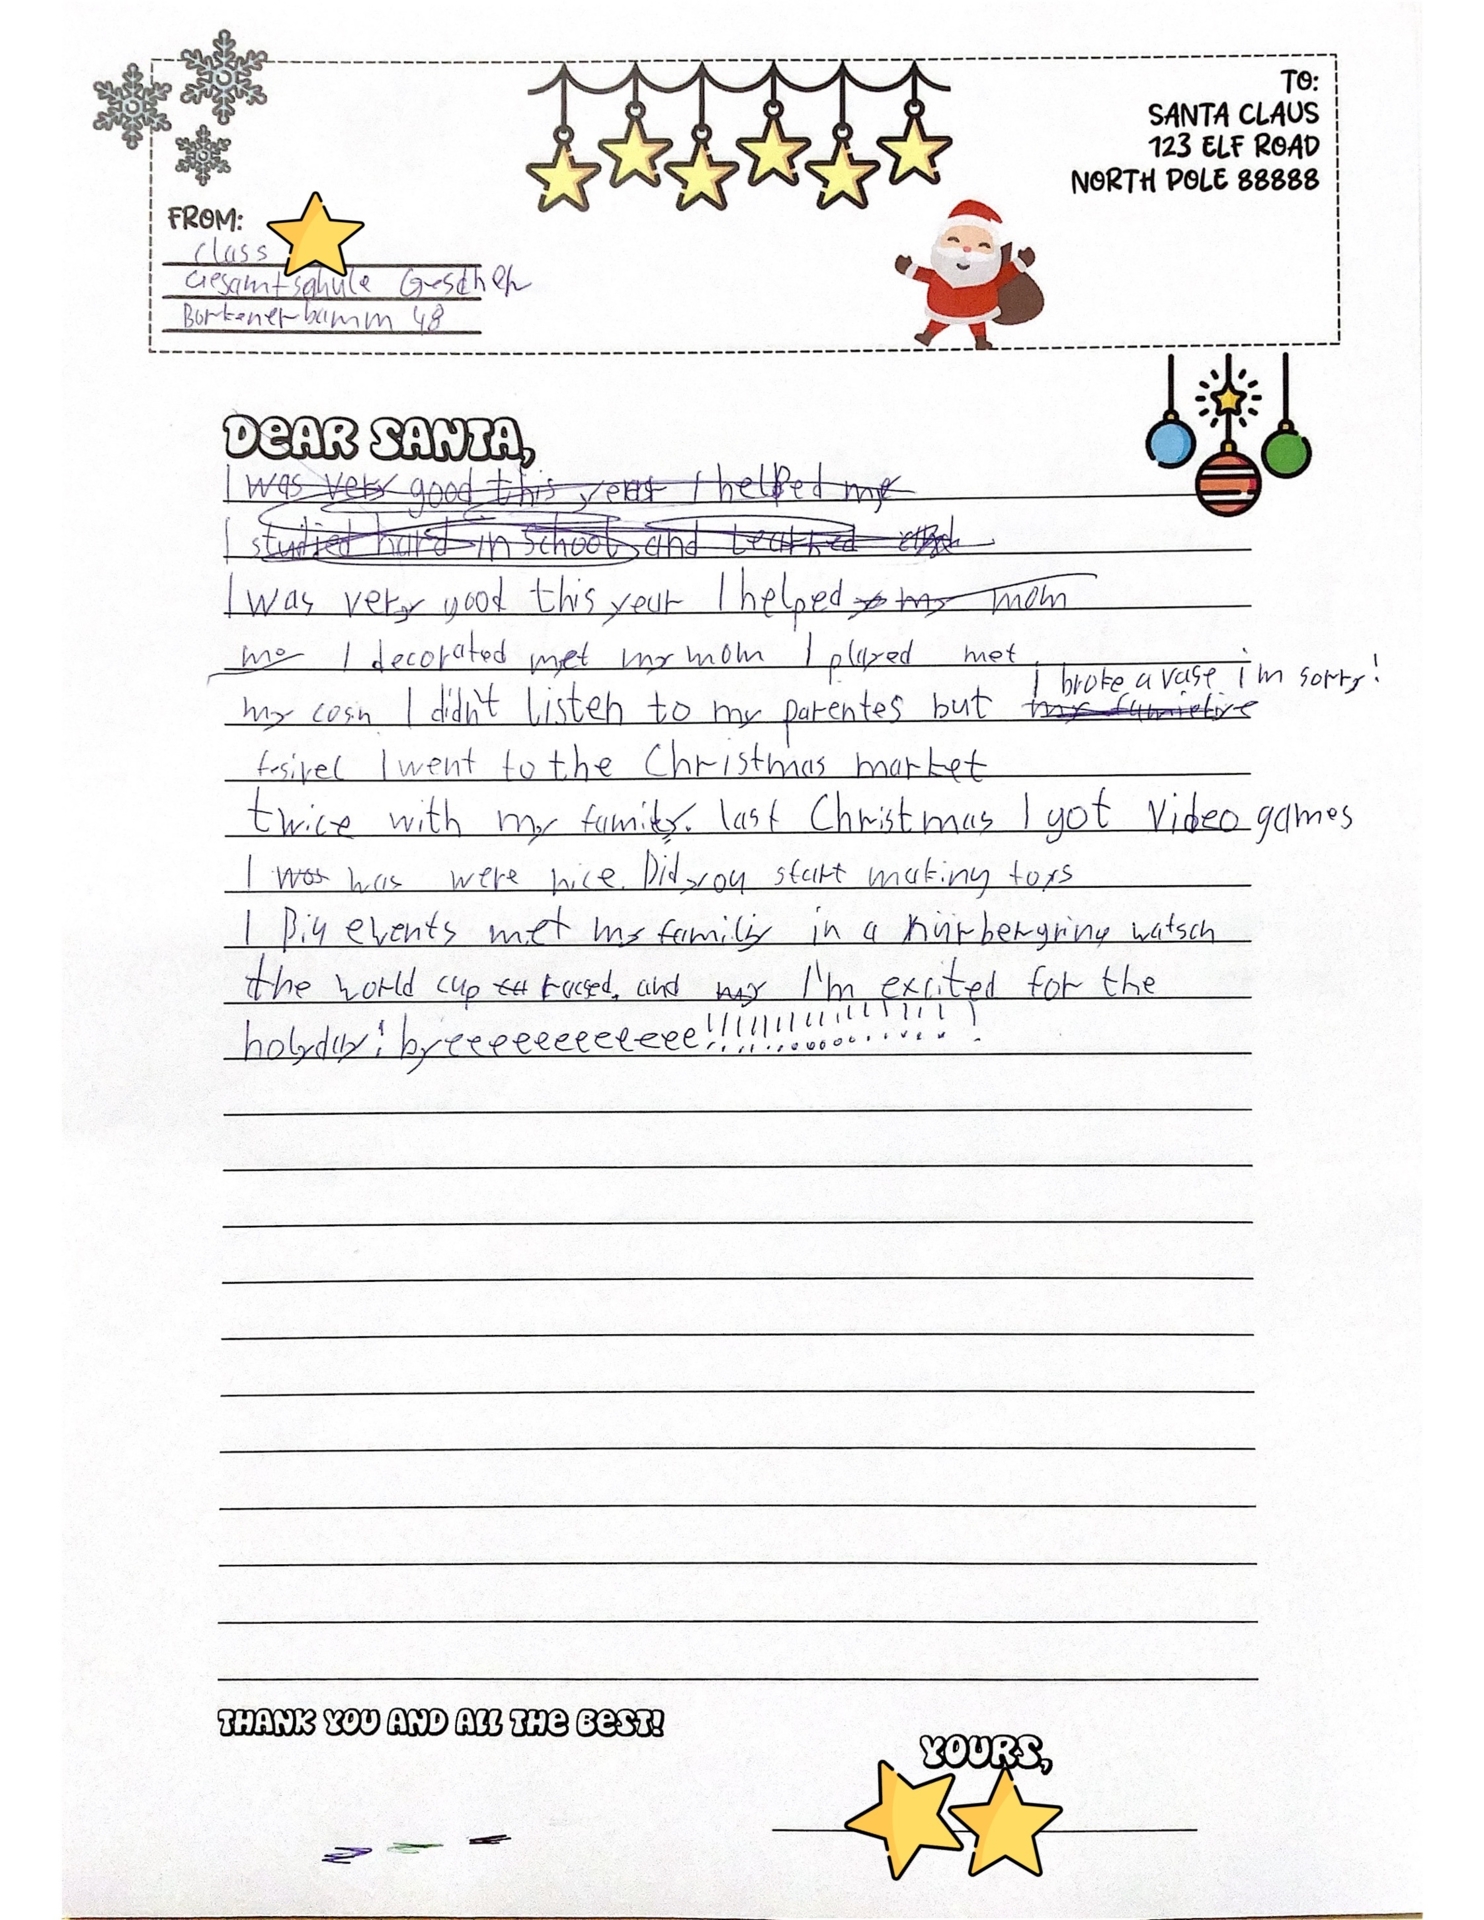 TO:
SANTA CLAUS
123 ELF ROAD
NORTH POLE 88888
FROM:
class
Gesamtschule Gescher
Borkenerdamm 48
DEAR SANTA,
I was very good this year I helped my
I studied hard in School and Learned
I was very good this year I helped my mom
me I decorated met my mom I played met
I broke a vase i'm sorry!
my cosn I didn't listen to my parentes but my
I went to the Christmas market
twice with my family. last Christmas I got Video games
I was has were nice. Did you start making toys
I Big events met my familiy in a Nürbergring watsch
the world cup raced, and my I'm excited for the
holyday! byeeeeeeeeeeeee!!!!!!!!!!!!!!!!!
THANK YOU AND ALL THE BEST!
YOURS,